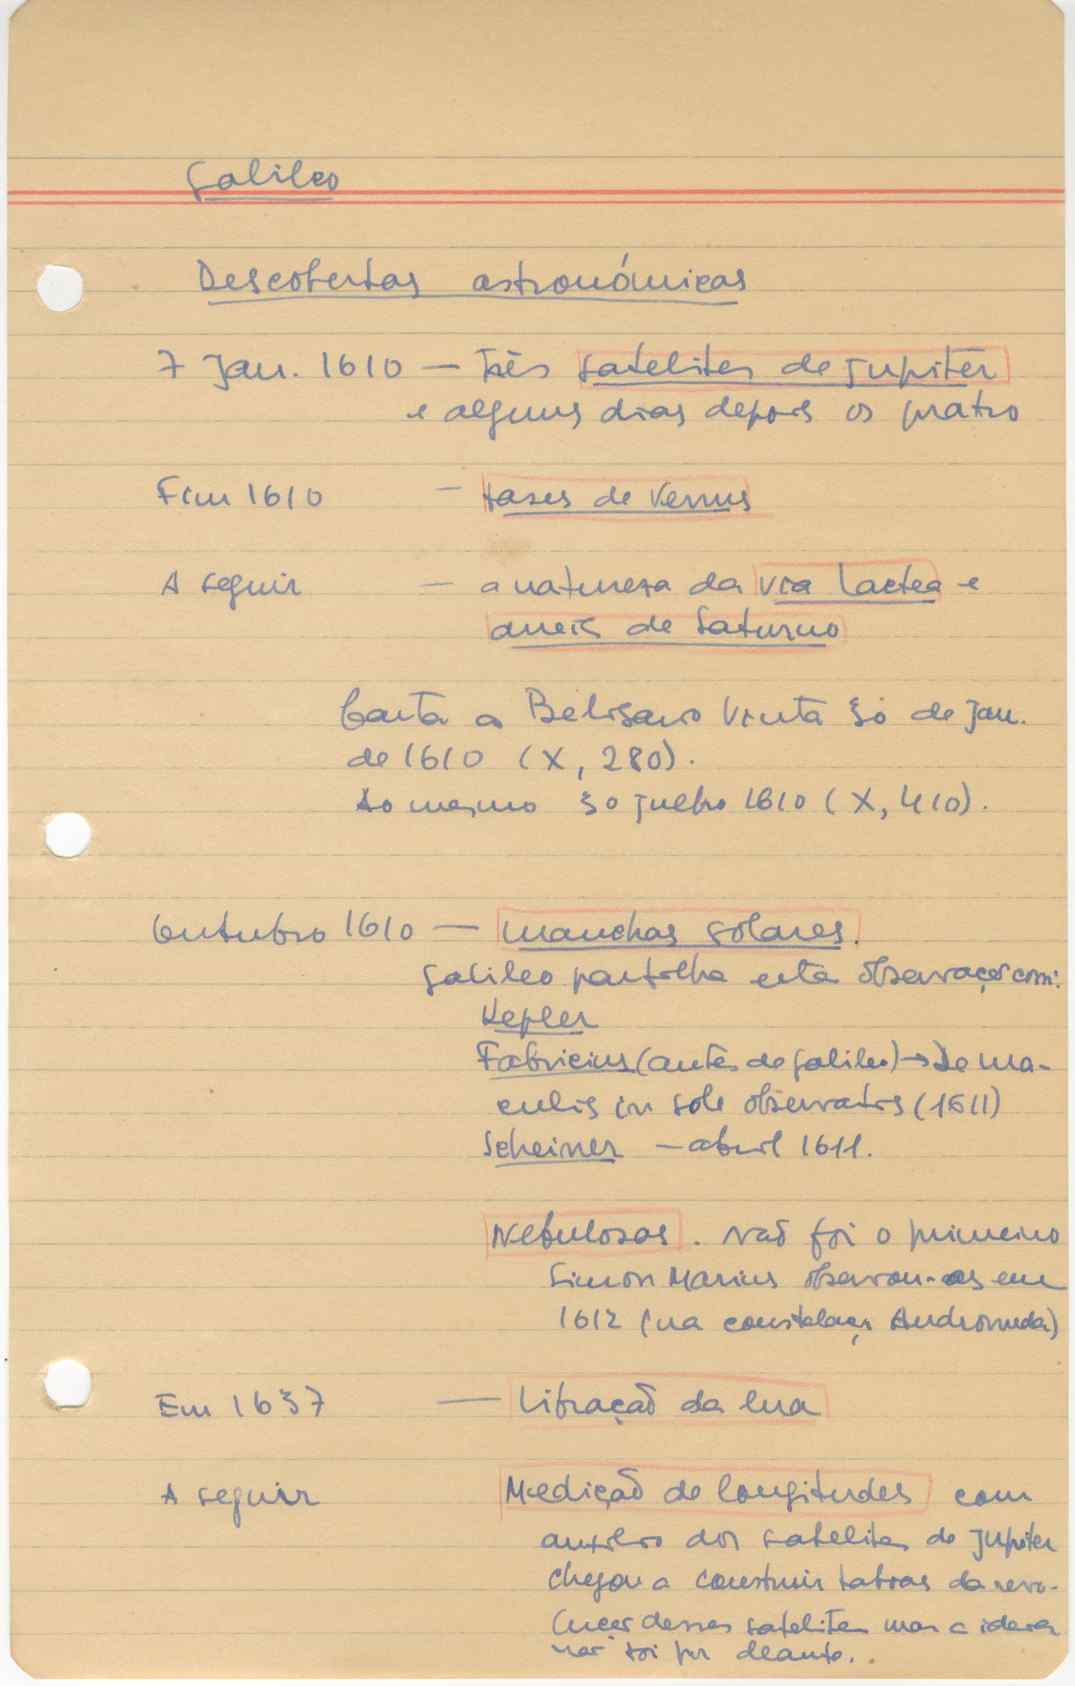 Galileo
Descobertas astronómicas
7 Jan. 1610 — três satelites de Jupiter
e alguns dias depois os quatro
Fim 1610 — fases de Venus
A seguir — a natureza da via lactea e
aneis de Saturno
Carta a Belisario Vinta 30 de Jan.
de 1610 (X, 280).
Ao mesmo 30 julho 1610 (X, 410).
Outubro 1610 — manchas solares.
Galileo partilha esta observação com:
Kepler
Fabricius (antes de Galileo) → De ma-
culis in sole observatis (1611)
Scheiner — abril 1611.
Nebulosas. Não foi o primeiro
Simon Marius observou-as em
1612 (na constelação Andromeda)
Em 1637 — Libração da lua
A seguir Medição de longitudes com
auxilio dos satelites de Jupiter
chegou a construir taboas da revo-
luções desses satelites mas a ideia
não foi por deante..